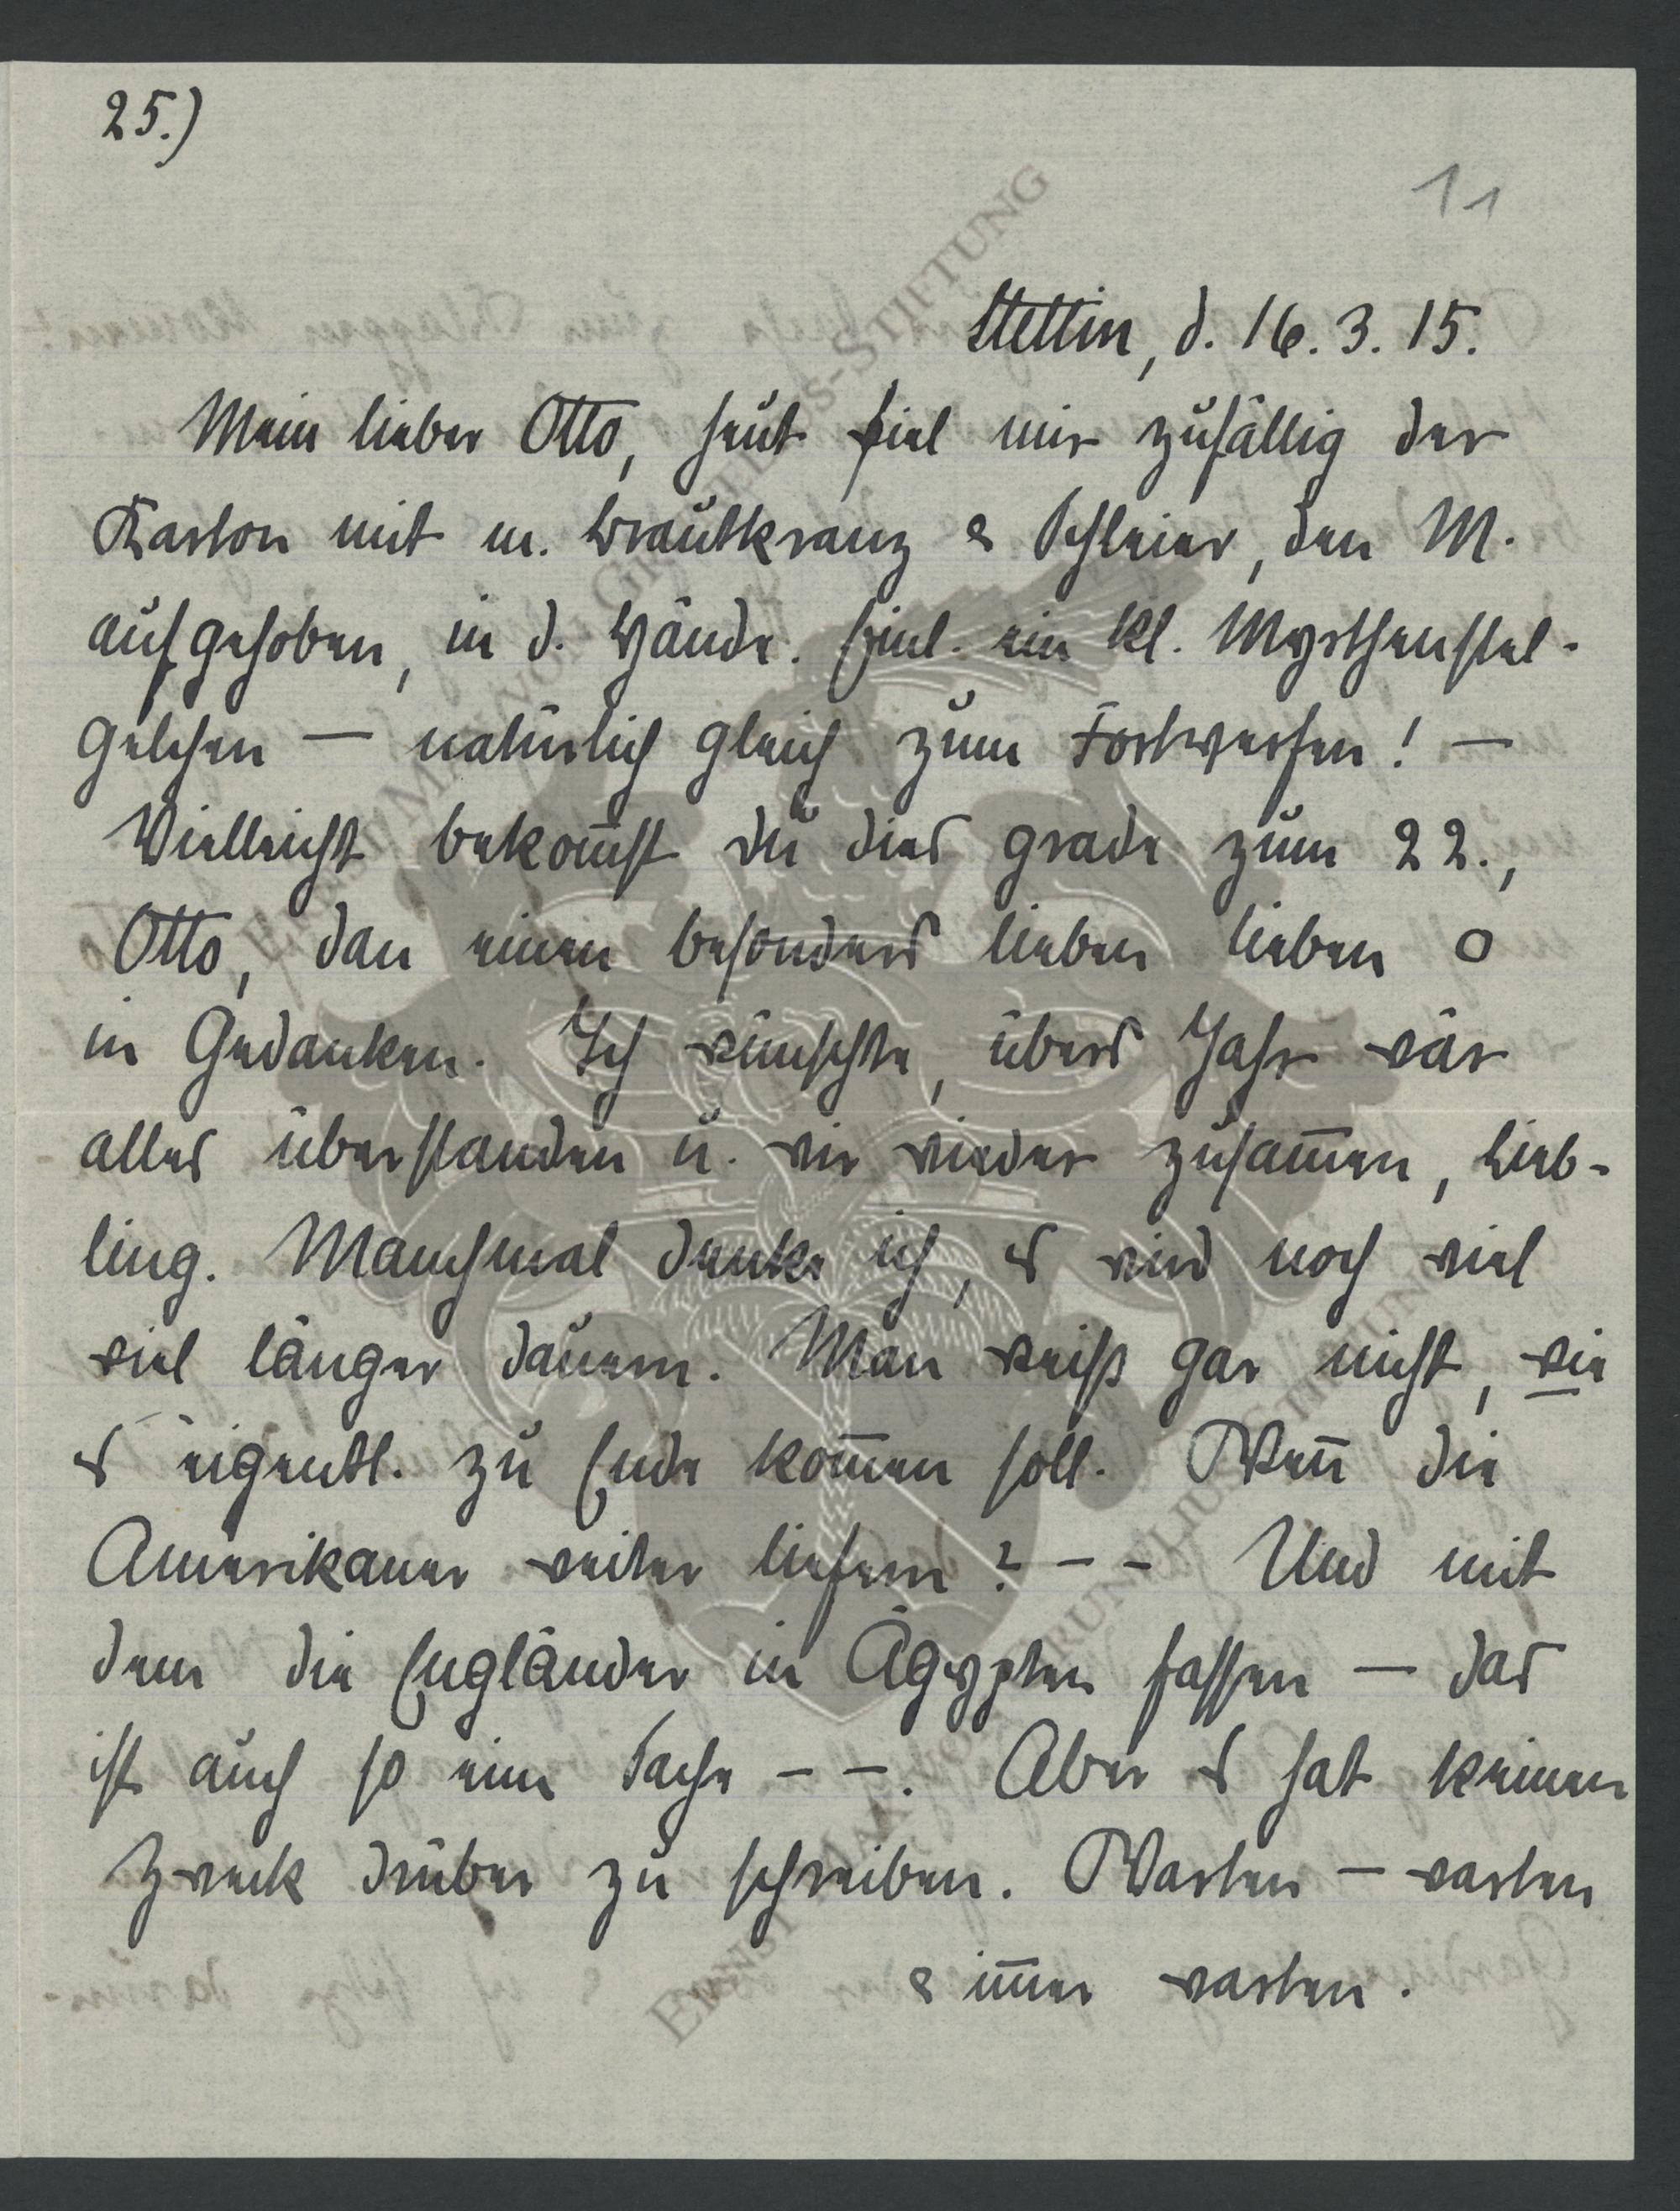 25.)
11
Stettin, d. 16.3.15.
Mein lieber Otto, heut fiel mir zufällig der
Karton mit m. Brautkranz & Schleier, den M.
aufgehoben, in d. Hände. Einl. ein kl. Myrthenstel-
gelchen — natürlich gleich zum Fortwerfen! —
Vielleicht bekom̅st du dies grade zum 22.,
Otto, dan einen besonders lieben lieben o
in Gedanken. Ich wünschte, übers Jahr wär
alles überstanden u. wir wieder zusam̅en, Lieb-
ling. Manchmal denke ich, es wird noch viel
viel länger dauern. Man weiß gar nicht, wie
es eigentl. zu Ende kom̅en soll. Wen̅ die
Amerikaner weiter liefern? – – Und mit
dem die Engländer in Ägypten fassen — das
ist auch so eine Sache – –. Aber es hat keinen
Zweck drüber zu schreiben. Warten — warten
& im̅er warten.
ERNST MAX VON GRUNELIUS-STIFTUNG
ERNST MAX VON GRUNELIUS-STIFTUNG